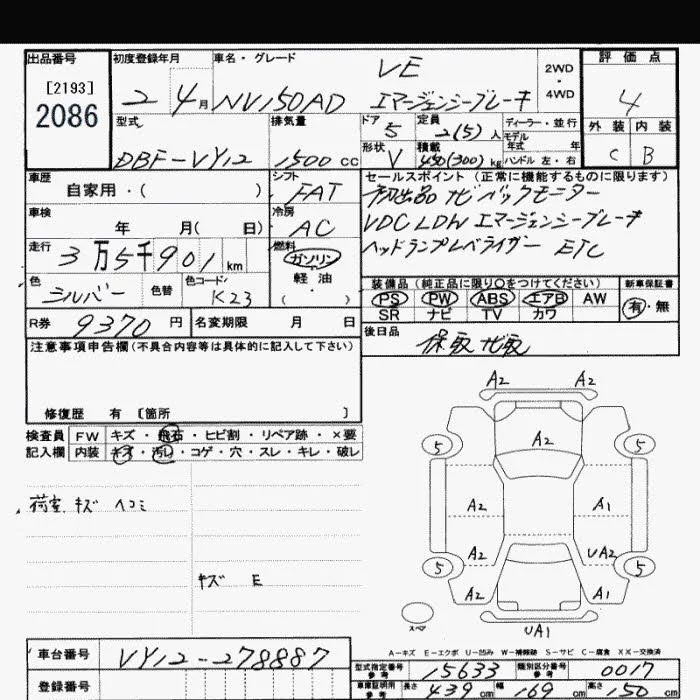 出品番号 初度登録年月 車名・グレード VE 2WD・4WD 評価点
[2193] 2 4月 NV150AD エマージェンシーブレーキ 4
2086
型式 排気量 ドア 5 定員 2(5)人 ディーラー・並行 外装 内装
モデル年式 年式
DBF-VY12 1500cc 形状 V 積載 450(300)kg ハンドル 左・右 C B
車歴 シフト セールスポイント (正常に機能するものに限ります)
自家用・( ) FAT 初出品 ナビ バックモニター
車検 冷房 VDC LDW エマージェンシーブレーキ
年 月( 日) AC ヘッドランプレベライザー ETC
走行 燃料
3万5千901km ガソリン
軽油
( )
色 色替 色コード
シルバー K23
装備品 (純正品に限り○をつけてください) 新車保証書
PS PW ABS エアB AW 有・無
SR ナビ TV カワ
R券 9370円 名変期限 月 日 後日品
保取 ナビ取
注意事項申告欄(不具合内容等は具体的に記入して下さい)
修復歴 有 〔箇所 〕
検査員 FW キズ・飛石・ヒビ割・リペア跡・×要
記入欄 内装 キズ・汚れ・コゲ・穴・スレ・キレ・破レ
荷室 キズ ヘコミ
キズ E
A2 A2
A2
5 5
A2 A1
A2 UA2
5 5
A2 A1
スペア UA1
A-キズ E-エクボ U-凹み W-補修跡 S-サビ C-腐食 XX-交換済
車台番号 VY12-278887
登録番号
型式指定番号 参考 15633 類別区分番号 参考 0017
車庫証明用 参考 長さ 439cm 幅 169cm 高さ 150cm